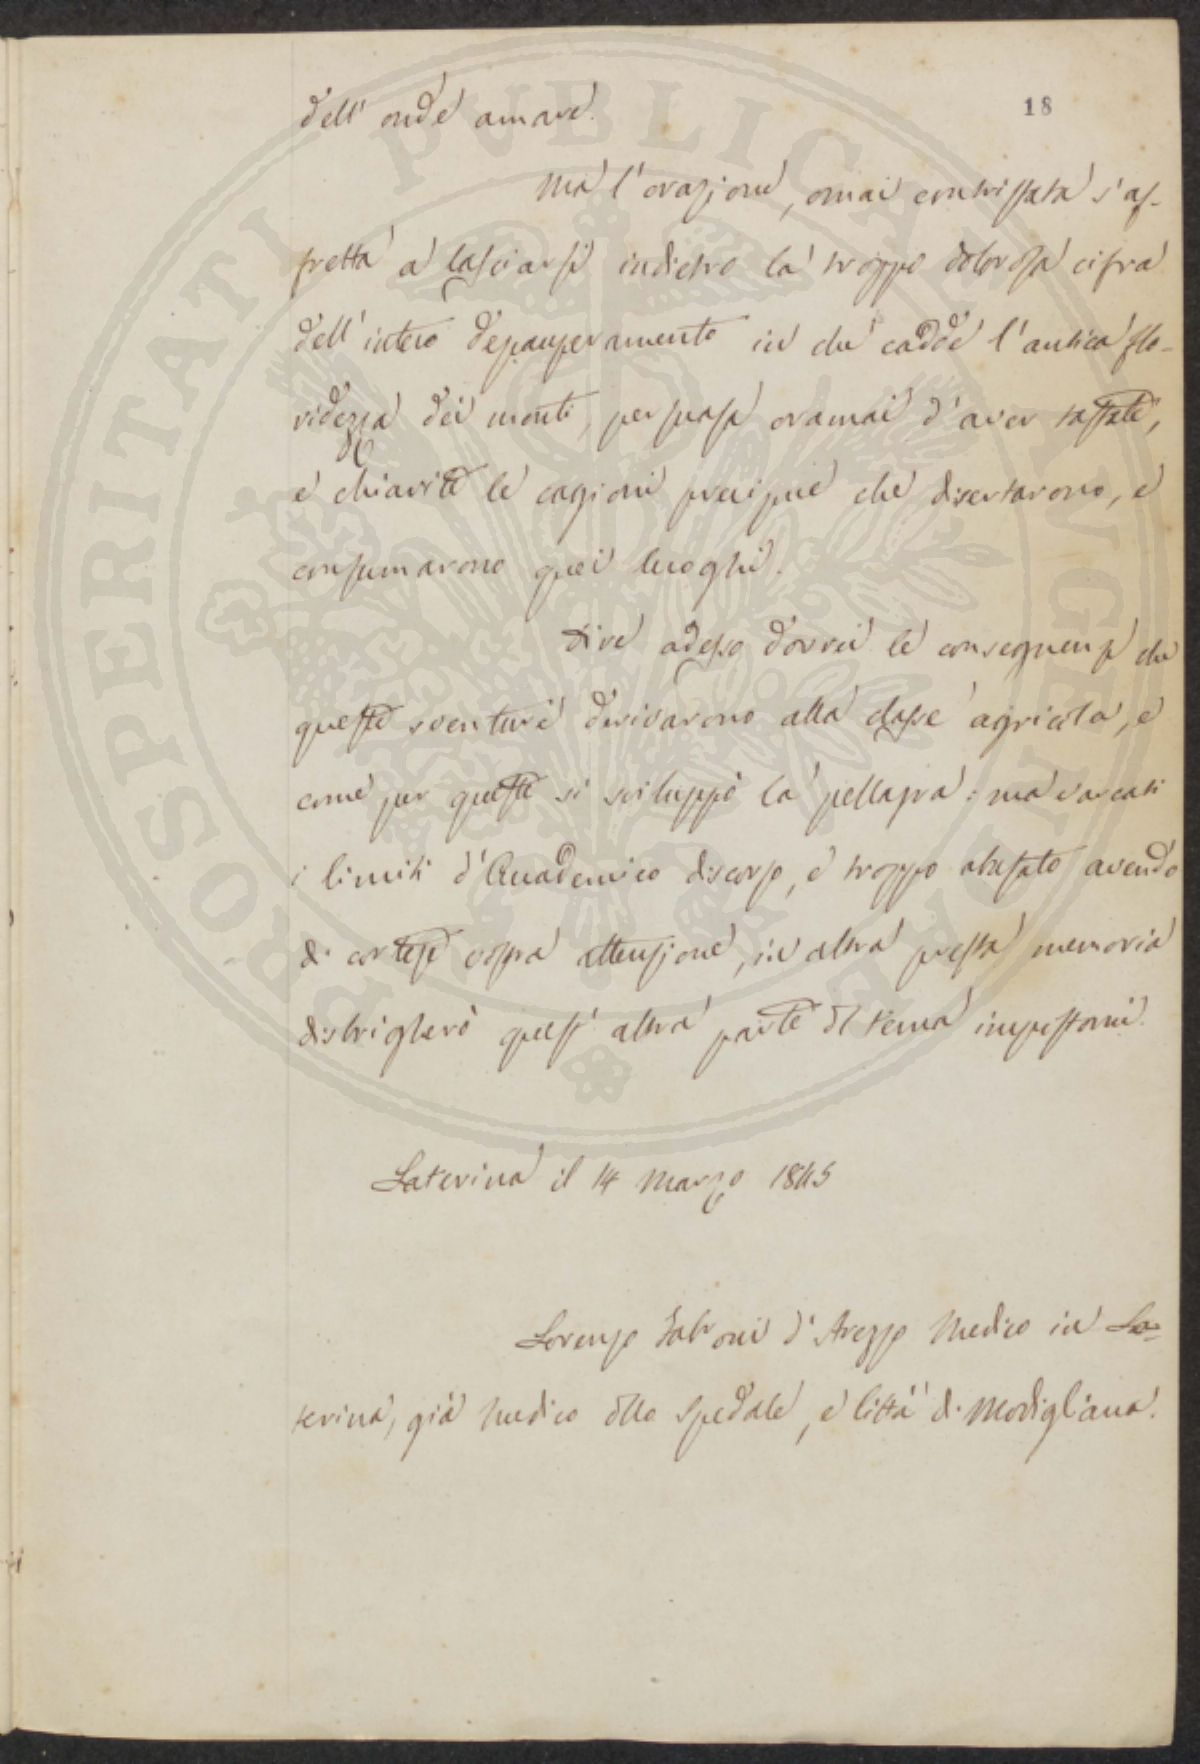 18
dell' onde amare.
Ma l'orazione, omai contristata s'af-
fretta a lasciarsi indietro la troppo dolorosa cifra
dell'intero depauperamento in che cadde l'antica flo-
ridezza dei monti, persuasa oramai d'aver tassate,
e chiarite le cagioni precipue che disertarono, e
consumarono quei luoghi.
Dire adesso dovrei le conseguenze che
queste sventure derivarono alla classe agricola, e
come per queste si sviluppò la pellagra: ma varcati
i limiti d'Accademico discorso, e troppo abusato avendo
di cortese vostra attenzione, in altra presta memoria
distrigherò quest'altra parte del tema impostomi.
Laterina il 14 Marzo 1845
Lorenzo Fabroni d'Arezzo Medico in La-
terina, già Medico dello Spedale, e Città di Modigliana.
PROSPERITATI PUBLICAE AUGENDAE